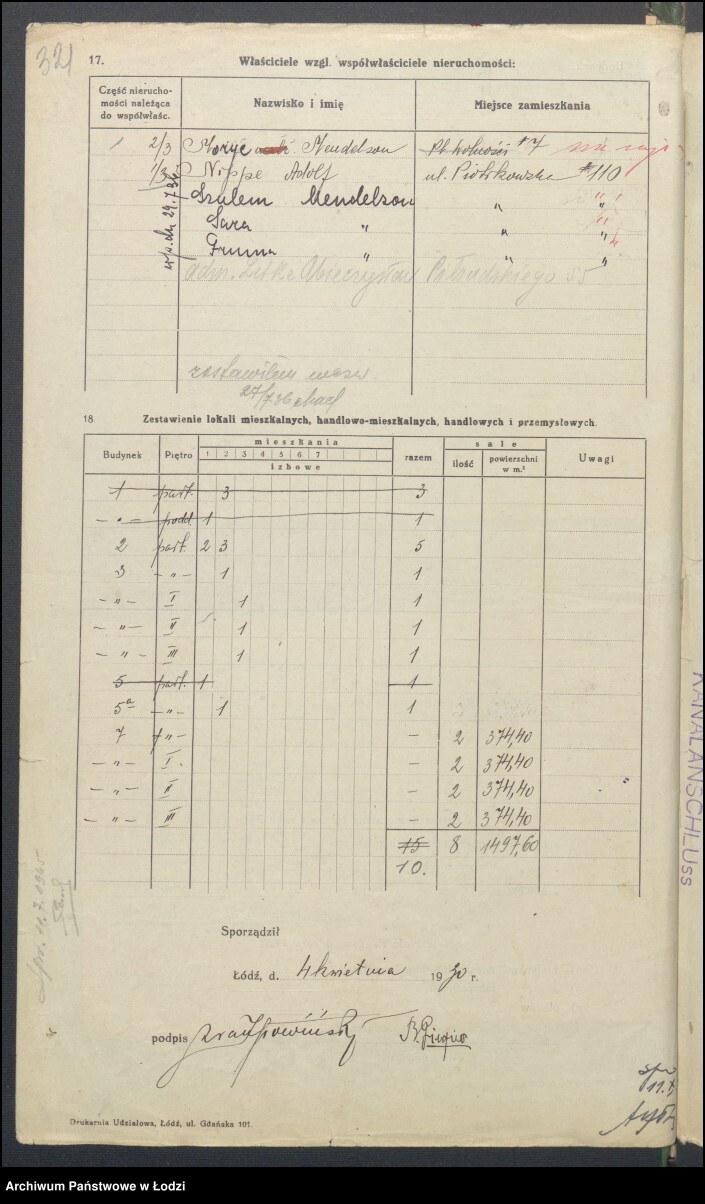 321
17. Właściciele wzgl. współwłaściciele nieruchomości:
Część nierucho-
mości należąca
do współwłaśc.
Nazwisko i imię
Miejsce zamieszkania
2/3 Moryc Mendelson Pl. Wolności # 7
1/3 Nippe Adolf ul. Piotrkowska # 110
Szulem Mendelson " "
Sara " " "
" " "
adm. Litke Mieczysław Piłsudskiego 55
27/7 36
18. Zestawienie lokali mieszkalnych, handlowo-mieszkalnych, handlowych i przemysłowych.
Budynek Piętro mieszkania razem sale Uwagi
1 2 3 4 5 6 7
izbowe
ilość powierzchni
w m.²
1 part. 3 3
– " – podd. 1 1
2 part. 2 3 5
3 – " – 1 1
– " – I 1 1
– " – II 1 1
– " – III 1 1
5 part. 1 1
5a – " – 1 1
7 – " – – 2 374,40
– " – I – 2 374,40
– " – II – 2 374,40
– " – III – 2 374,40
15 8 1497,60
10.
Sporządził
Łódź, d. 4 kwietnia 1930 r.
podpis
Drukarnia Udziałowa, Łódź, ul. Gdańska 101.
KANALANSCHLUSS
Archiwum Państwowe w Łodzi